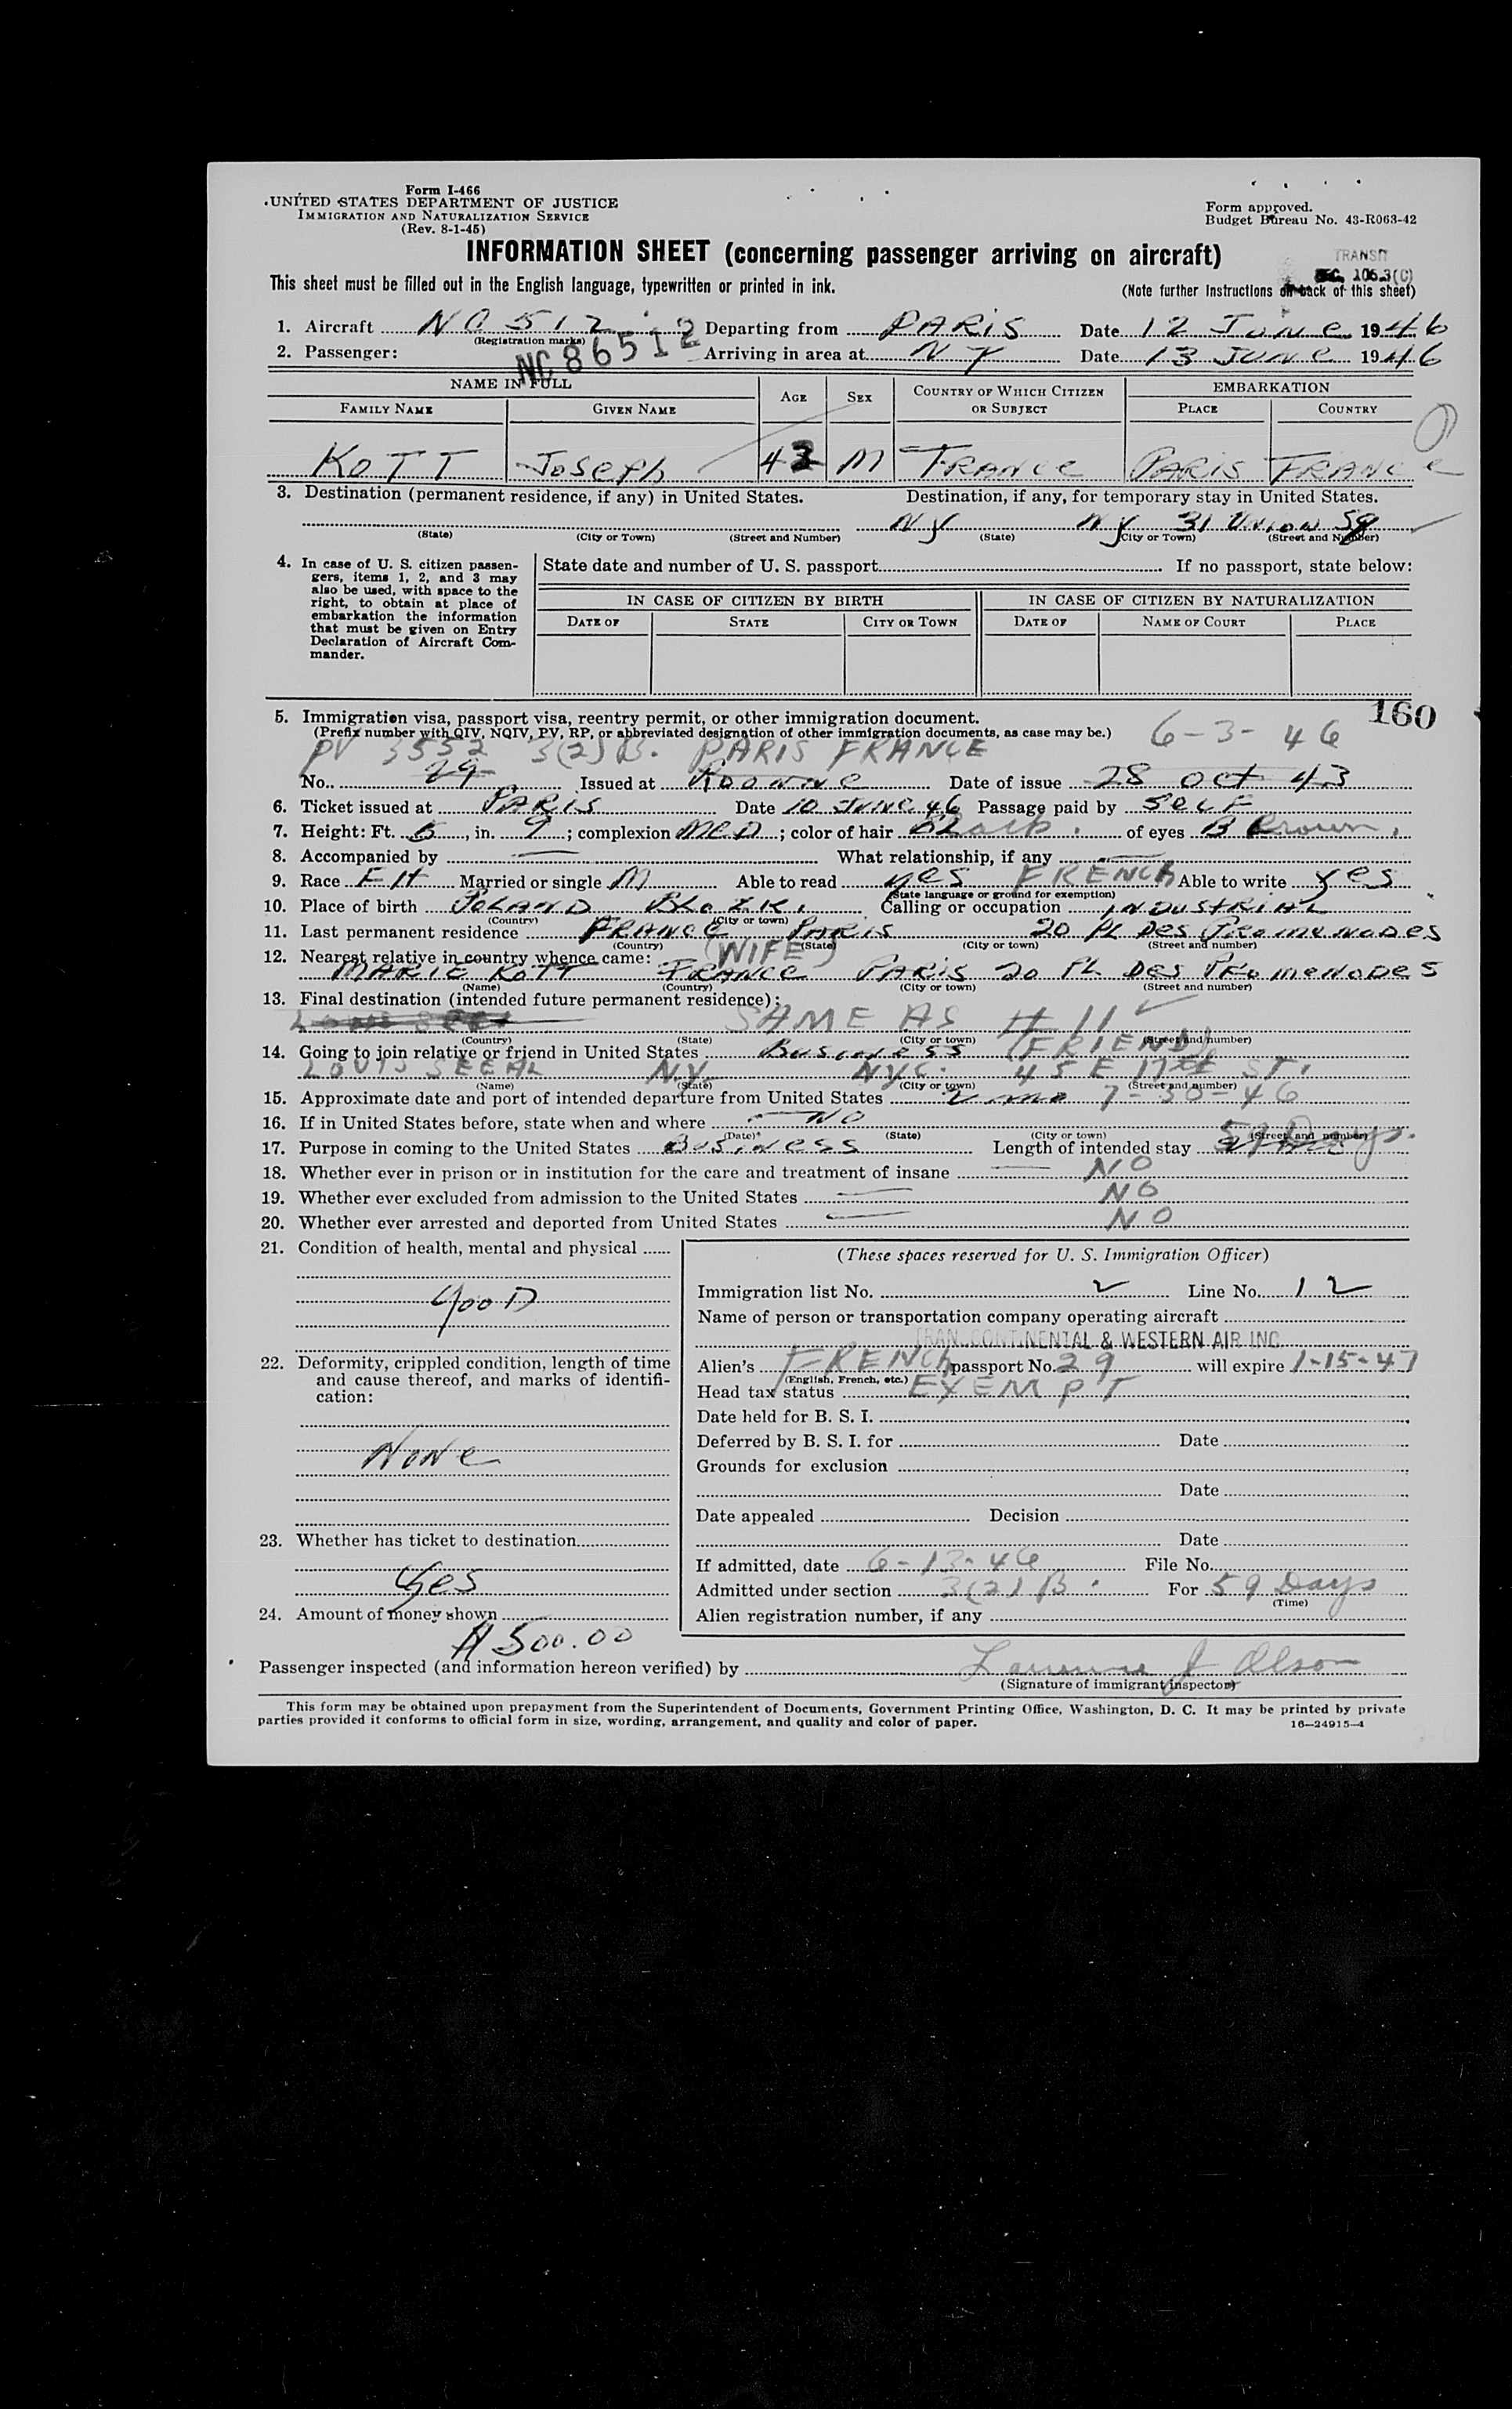 Form I-466
UNITED STATES DEPARTMENT OF JUSTICE
IMMIGRATION AND NATURALIZATION SERVICE
(Rev. 8-1-45)
Form approved.
Budget Bureau No. 43-R063-42
INFORMATION SHEET (concerning passenger arriving on aircraft)
TRANSIT
SEC. 106.3(C)
This sheet must be filled out in the English language, typewritten or printed in ink.
(Note further instructions on back of this sheet)
1. Aircraft NC 512 Departing from PARIS Date 12 JUNE 1946
(Registration marks)
NC 86512
2. Passenger: Arriving in area at NY Date 13 JUNE 1946
NAME IN FULL AGE SEX COUNTRY OF WHICH CITIZEN OR SUBJECT EMBARKATION
FAMILY NAME GIVEN NAME PLACE COUNTRY
KOTT Joseph 43 M FRANCE PARIS FRANCE
3. Destination (permanent residence, if any) in United States. Destination, if any, for temporary stay in United States.
NY NY 31 UNION Sq
(State) (City or Town) (Street and Number) (State) (City or Town) (Street and Number)
4. In case of U. S. citizen passengers, items 1, 2, and 3 may also be used, with space to the right, to obtain at place of embarkation the information that must be given on Entry Declaration of Aircraft Commander.
State date and number of U. S. passport If no passport, state below:
IN CASE OF CITIZEN BY BIRTH IN CASE OF CITIZEN BY NATURALIZATION
DATE OF STATE CITY OR TOWN DATE OF NAME OF COURT PLACE
160
5. Immigration visa, passport visa, reentry permit, or other immigration document.
(Prefix number with QIV, NQIV, PV, RP, or abbreviated designation of other immigration documents, as case may be.) 6-3-46
PV 3552 3(2) B. PARIS FRANCE
No. 29 Issued at Date of issue 28 OCT 43
6. Ticket issued at PARIS Date 10 JUNE 46 Passage paid by SELF
7. Height: Ft. 5, in. 9; complexion MED; color of hair Black. of eyes Brown.
8. Accompanied by — What relationship, if any —
9. Race Married or single M Able to read yes FRENCH Able to write yes
(State language or ground for exemption)
10. Place of birth POLAND Calling or occupation INDUSTRIAL
(Country) (City or town)
11. Last permanent residence FRANCE PARIS 20 PL Des Promenades
(Country) (State) (City or town) (Street and number)
12. Nearest relative in country whence came: (WIFE)
MARIE KOTT FRANCE PARIS 20 PL Des PRomenades
(Name) (Country) (City or town) (Street and number)
13. Final destination (intended future permanent residence):
SAME AS #11
(Country) (State) (City or town) (Street and number)
14. Going to join relative or friend in United States Business (FRIEND)
LOUIS SEEAL N.Y. NYC. 45 E 17th ST.
(Name) (State) (City or town) (Street and number)
15. Approximate date and port of intended departure from United States 2 mo 7-30-46
16. If in United States before, state when and where NO
(Date) (State) (City or town) (Street and number)
17. Purpose in coming to the United States Business Length of intended stay 59 Days.
18. Whether ever in prison or in institution for the care and treatment of insane NO
19. Whether ever excluded from admission to the United States NO
20. Whether ever arrested and deported from United States NO
21. Condition of health, mental and physical
GooD
22. Deformity, crippled condition, length of time and cause thereof, and marks of identification:
NoNe
23. Whether has ticket to destination
Yes
24. Amount of money shown
$ 500.00
(These spaces reserved for U. S. Immigration Officer)
Immigration list No. 2 Line No. 12
Name of person or transportation company operating aircraft
TRANSCONTINENTAL & WESTERN AIR INC
Alien's FRENCH passport No. 29 will expire 1-15-47
(English, French, etc.)
Head tax status EXEMPT
Date held for B. S. I.
Deferred by B. S. I. for Date
Grounds for exclusion
Date
Date appealed Decision
Date
If admitted, date 6-13-46 File No.
Admitted under section 3(2) B. For 59 Days
(Time)
Alien registration number, if any
Passenger inspected (and information hereon verified) by Lawrence J Olson
(Signature of immigrant inspector)
This form may be obtained upon prepayment from the Superintendent of Documents, Government Printing Office, Washington, D. C. It may be printed by private
parties provided it conforms to official form in size, wording, arrangement, and quality and color of paper. 16—24915-4